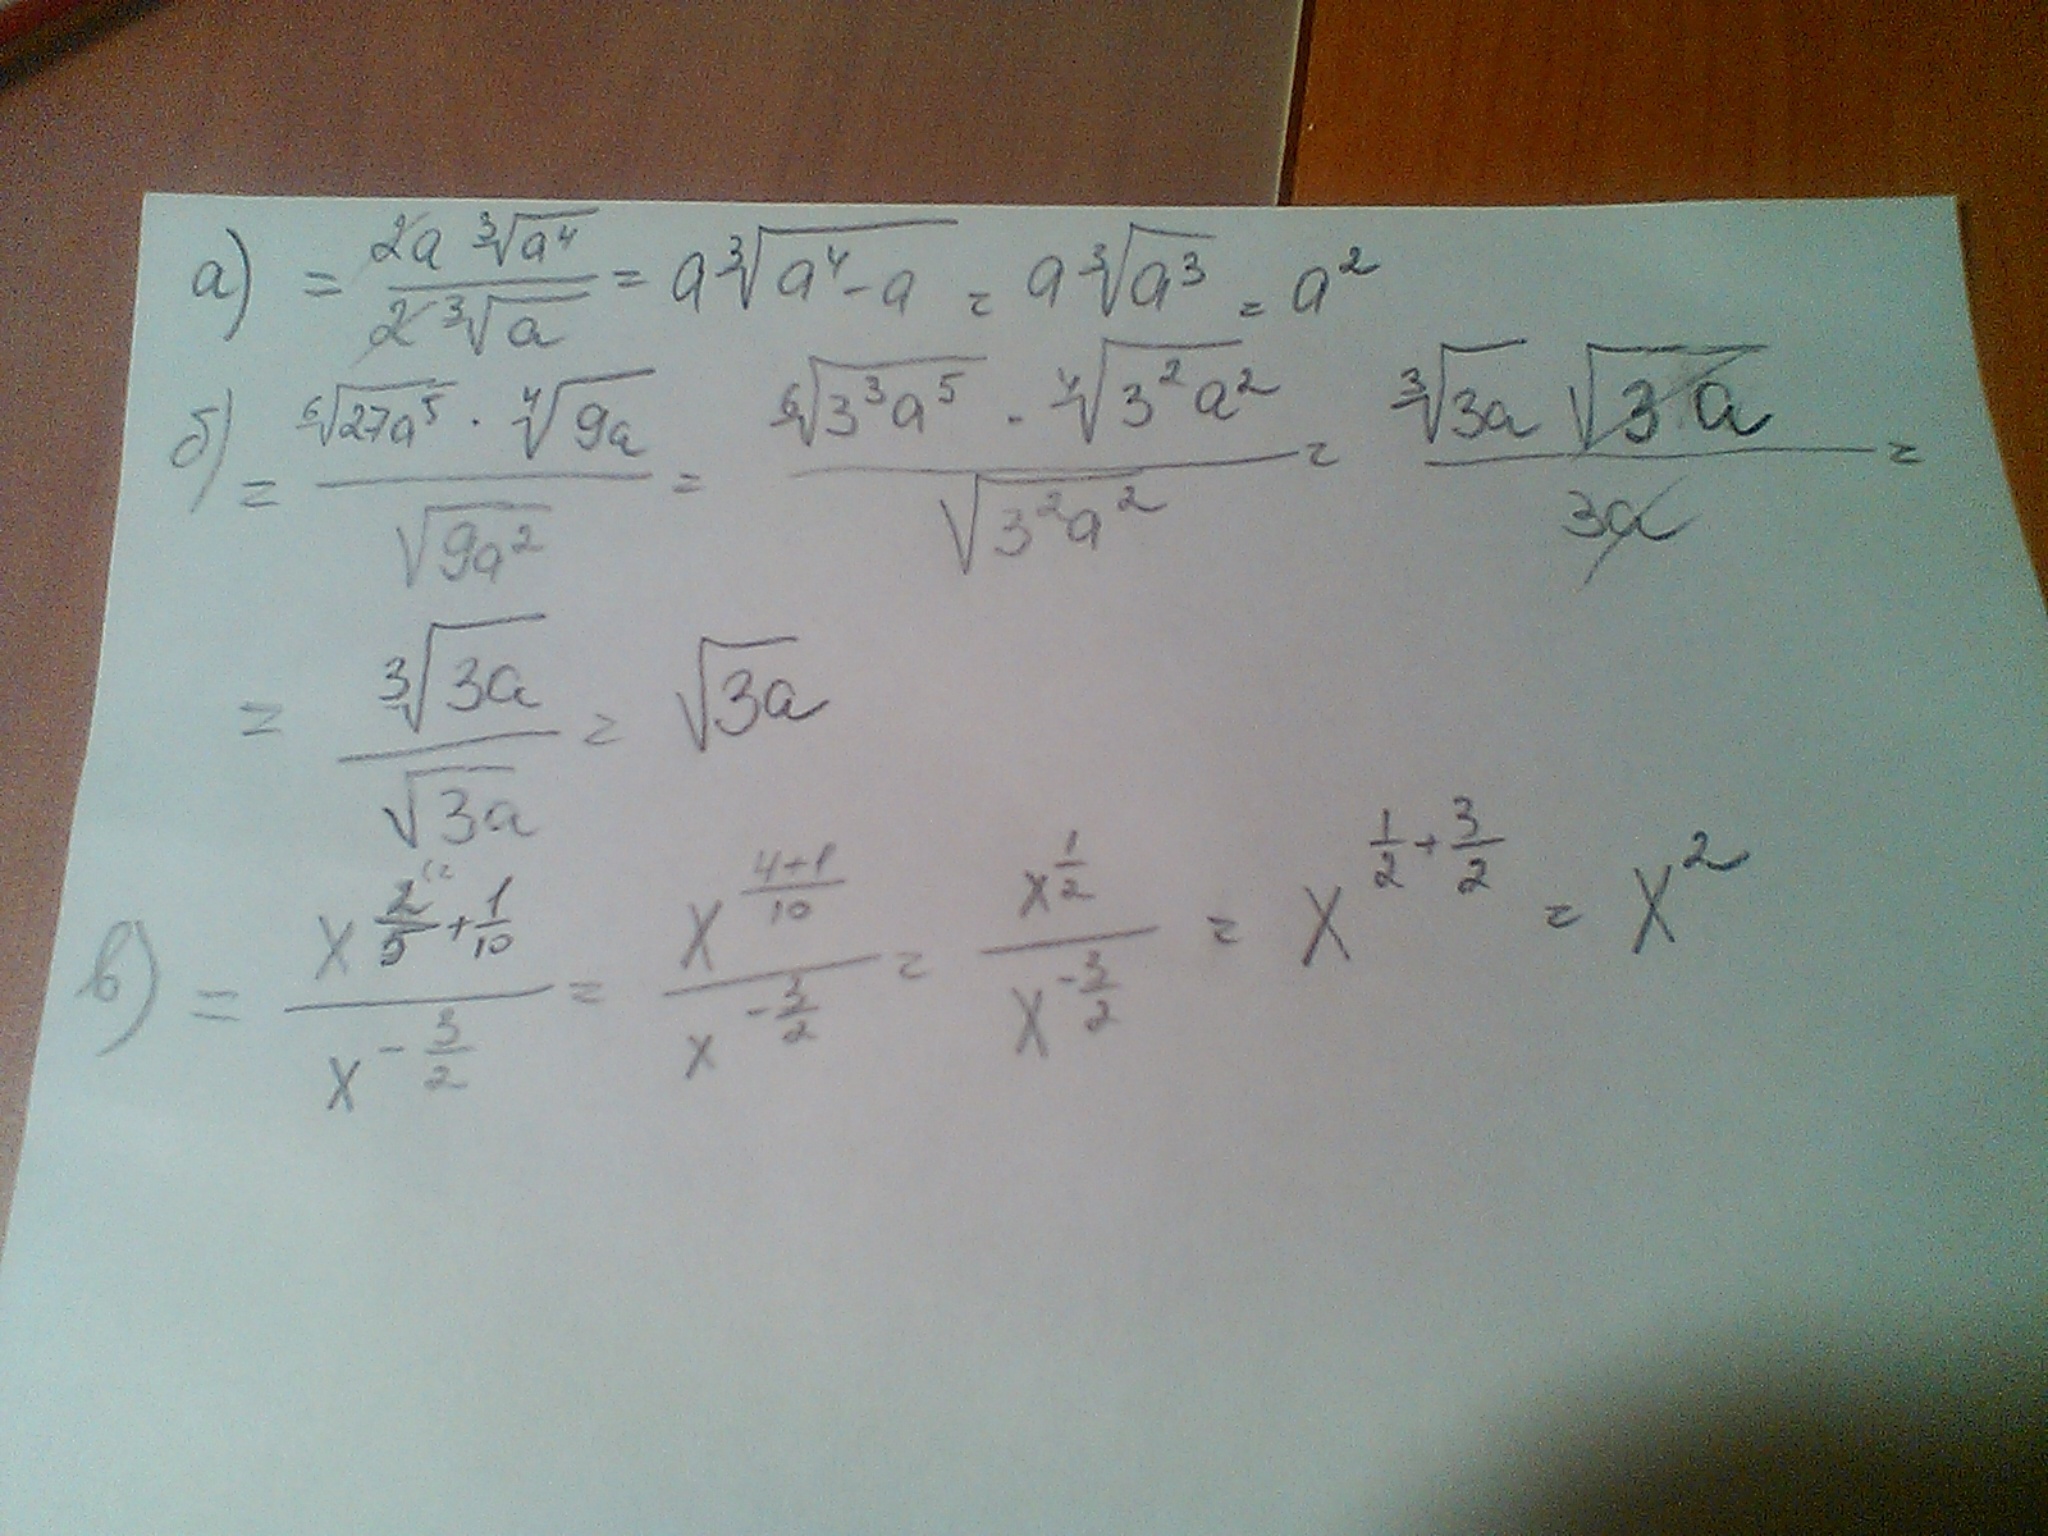 а) = 2a ∛a⁴ / 2 ∛a = a ∛(a⁴ - a) = a ∛a³ = a²
б) = ⁶√(27a⁵) · ⁴√(9a) / √(9a²) = ⁶√(3³a⁵) · ⁴√(3²a²) / √(3²a²) = ∛(3a) √(3a) / 3a =
= ∛(3a) / √(3a) = √(3a)
в) = x^(2/5 + 1/10) / x^(-3/2) = x^((4+1)/10) / x^(-3/2) = x^(1/2) / x^(-3/2) = x^(1/2 + 3/2) = x²